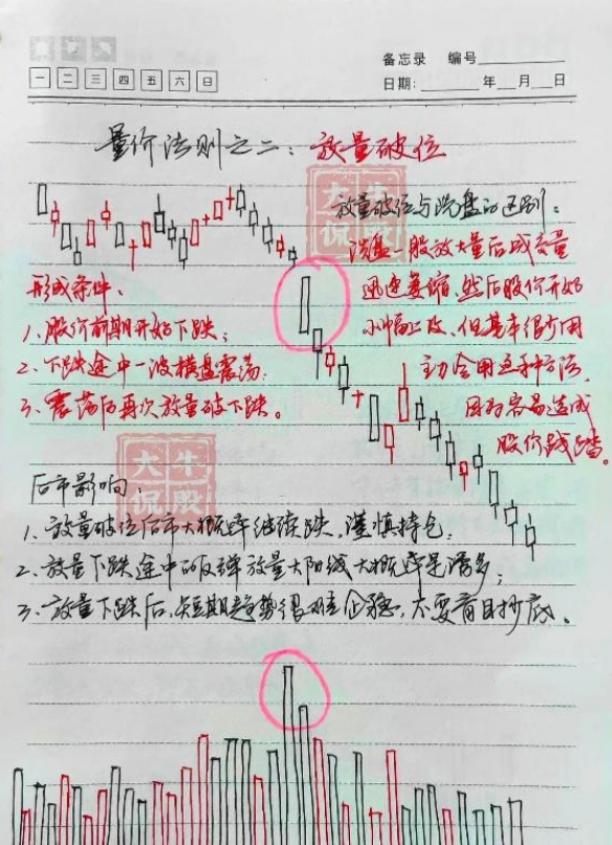 备忘录 编号
一 二 三 四 五 六 日
日期: 年 月 日
量价法则之二：放量破位
大牛
侃股
放量破位与洗盘的区别：
洗盘一般放大量后成交量
迅速萎缩，然后股价开始
小幅上攻，但基本很少用
主力会用这种方法，
因为容易造成
股价践踏。
形成条件：
1、股价前期开始下跌；
2、下跌途中一波横盘震荡；
3、震荡后再次放量破下跌。
大牛
侃股
后市影响
1、放量破位后市大概率继续跌，谨慎持仓；
2、放量下跌途中的反弹放量大阳线大概率是诱多；
3、放量下跌后，短期趋势很难企稳，不要盲目抄底。